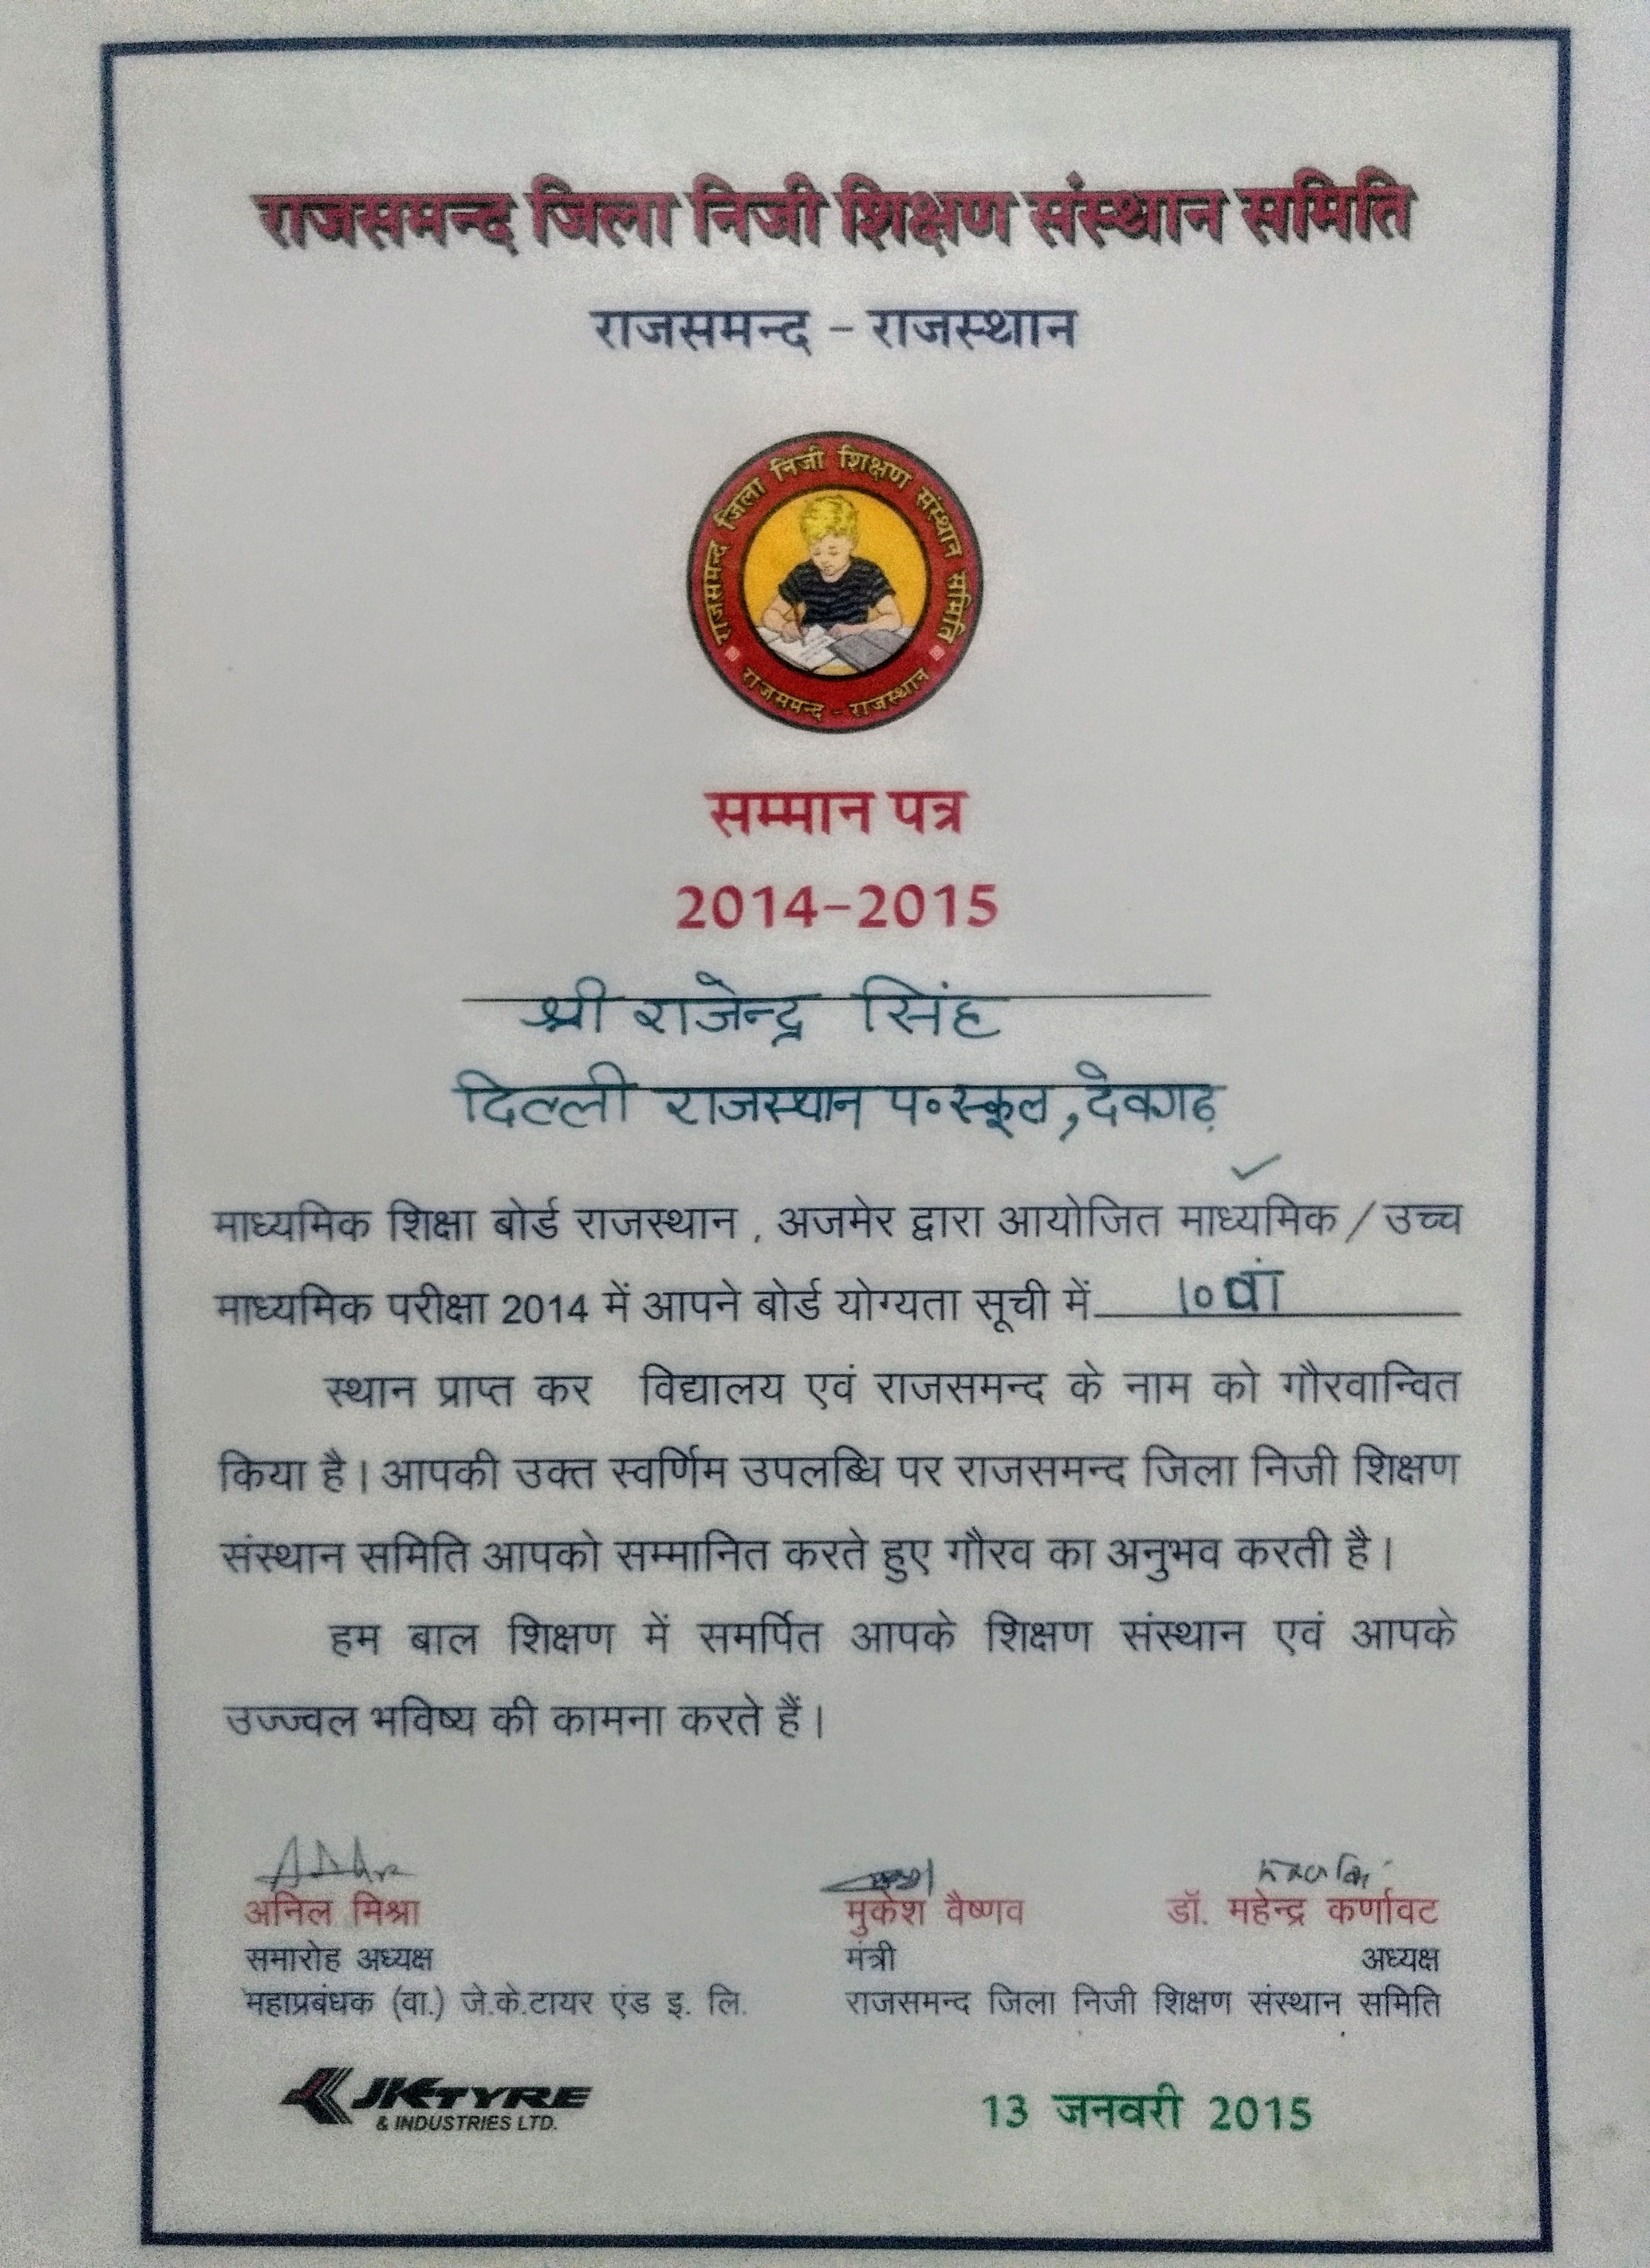 राजसमन्द जिला निजी शिक्षण संस्थान समिति
राजसमन्द – राजस्थान
राजसमन्द जिला निजी शिक्षण संस्थान समिति
राजसमन्द - राजस्थान
सम्मान पत्र
2014–2015
श्री राजेन्द्र सिंह
दिल्ली राजस्थान प॰ स्कूल, देवगढ़
माध्यमिक शिक्षा बोर्ड राजस्थान , अजमेर द्वारा आयोजित माध्यमिक / उच्च
माध्यमिक परीक्षा 2014 में आपने बोर्ड योग्यता सूची में १०वां
स्थान प्राप्त कर विद्यालय एवं राजसमन्द के नाम को गौरवान्वित
किया है। आपकी उक्त स्वर्णिम उपलब्धि पर राजसमन्द जिला निजी शिक्षण
संस्थान समिति आपको सम्मानित करते हुए गौरव का अनुभव करती है।
हम बाल शिक्षण में समर्पित आपके शिक्षण संस्थान एवं आपके
उज्ज्वल भविष्य की कामना करते हैं।
अनिल मिश्रा
समारोह अध्यक्ष
महाप्रबंधक (वा.) जे.के.टायर एंड इ. लि.
मुकेश वैष्णव डॉ. महेन्द्र कर्णावट
मंत्री अध्यक्ष
राजसमन्द जिला निजी शिक्षण संस्थान समिति
JK TYRE
& INDUSTRIES LTD.
13 जनवरी 2015